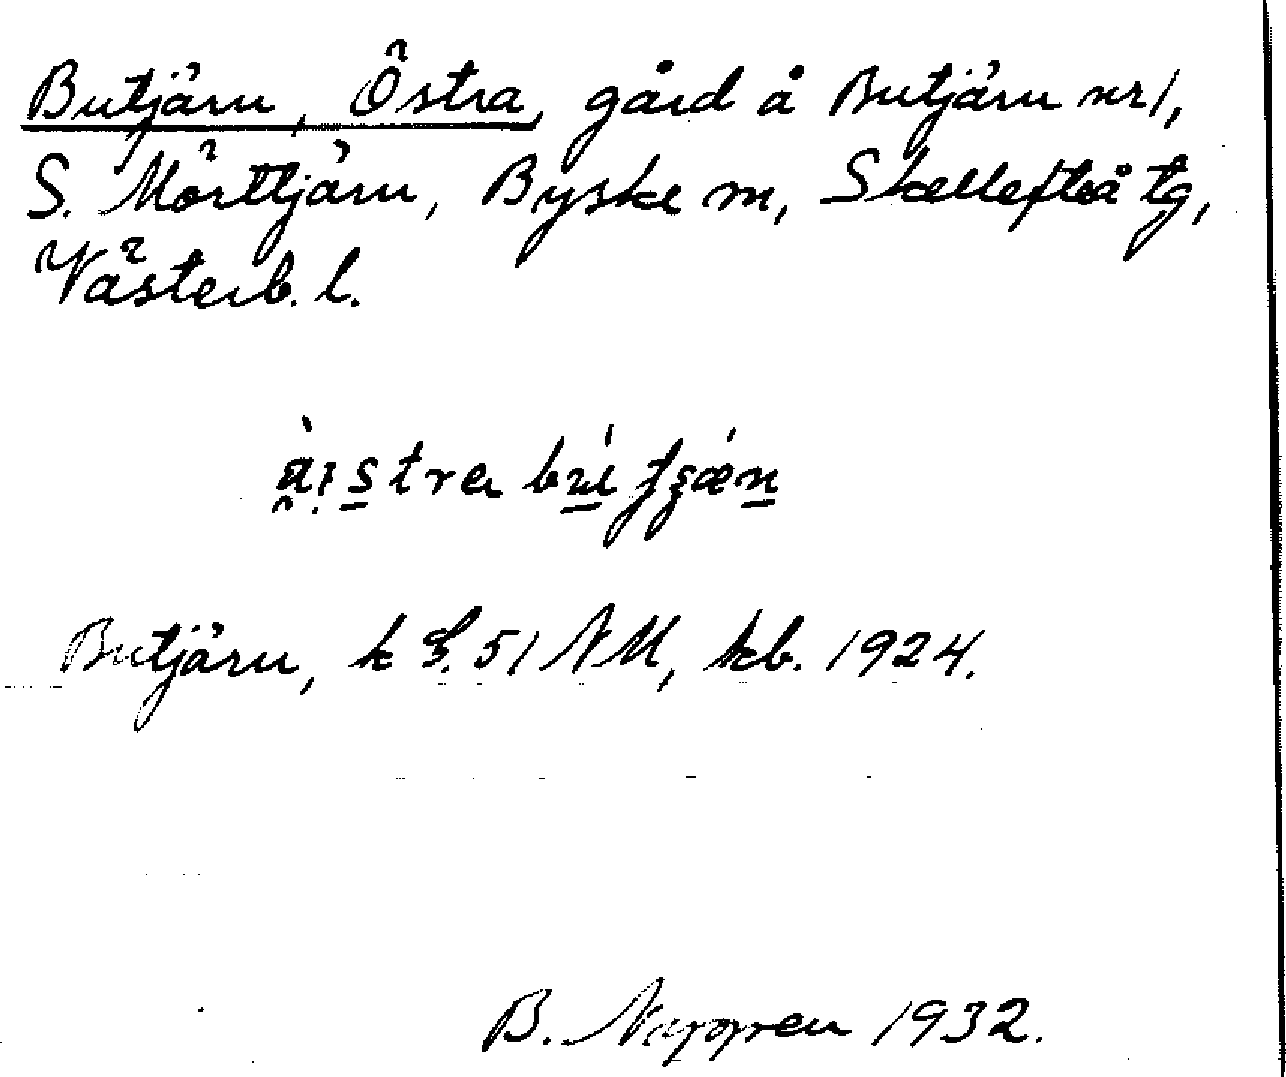 Butjärn, Östra, gård å Butjärn nr 1,
S. Mörttjärn, Byske sn, Skellefteå tg,
Västerb. l.
Butjärn, k 51 NM, kb. 1924.
B. 1932.